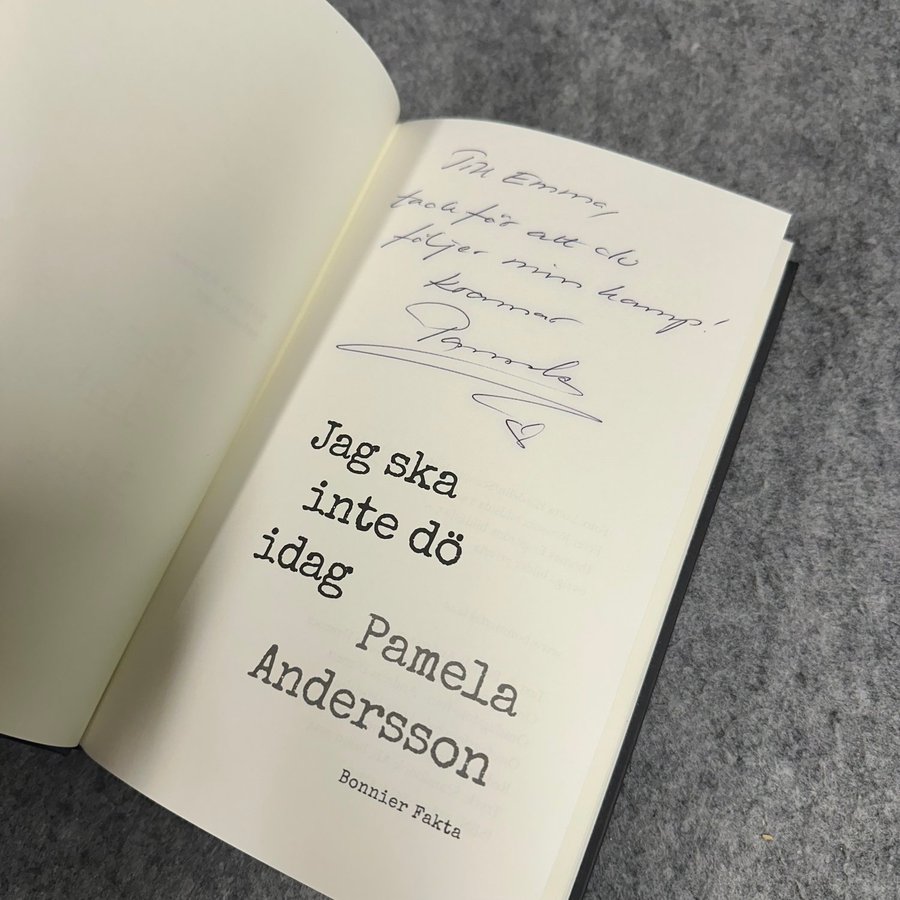 Till Emma,
tack för att du
följer min kamp!
Kramar
Pamela
Jag ska
inte dö
idag
Pamela
Andersson
Bonnier Fakta